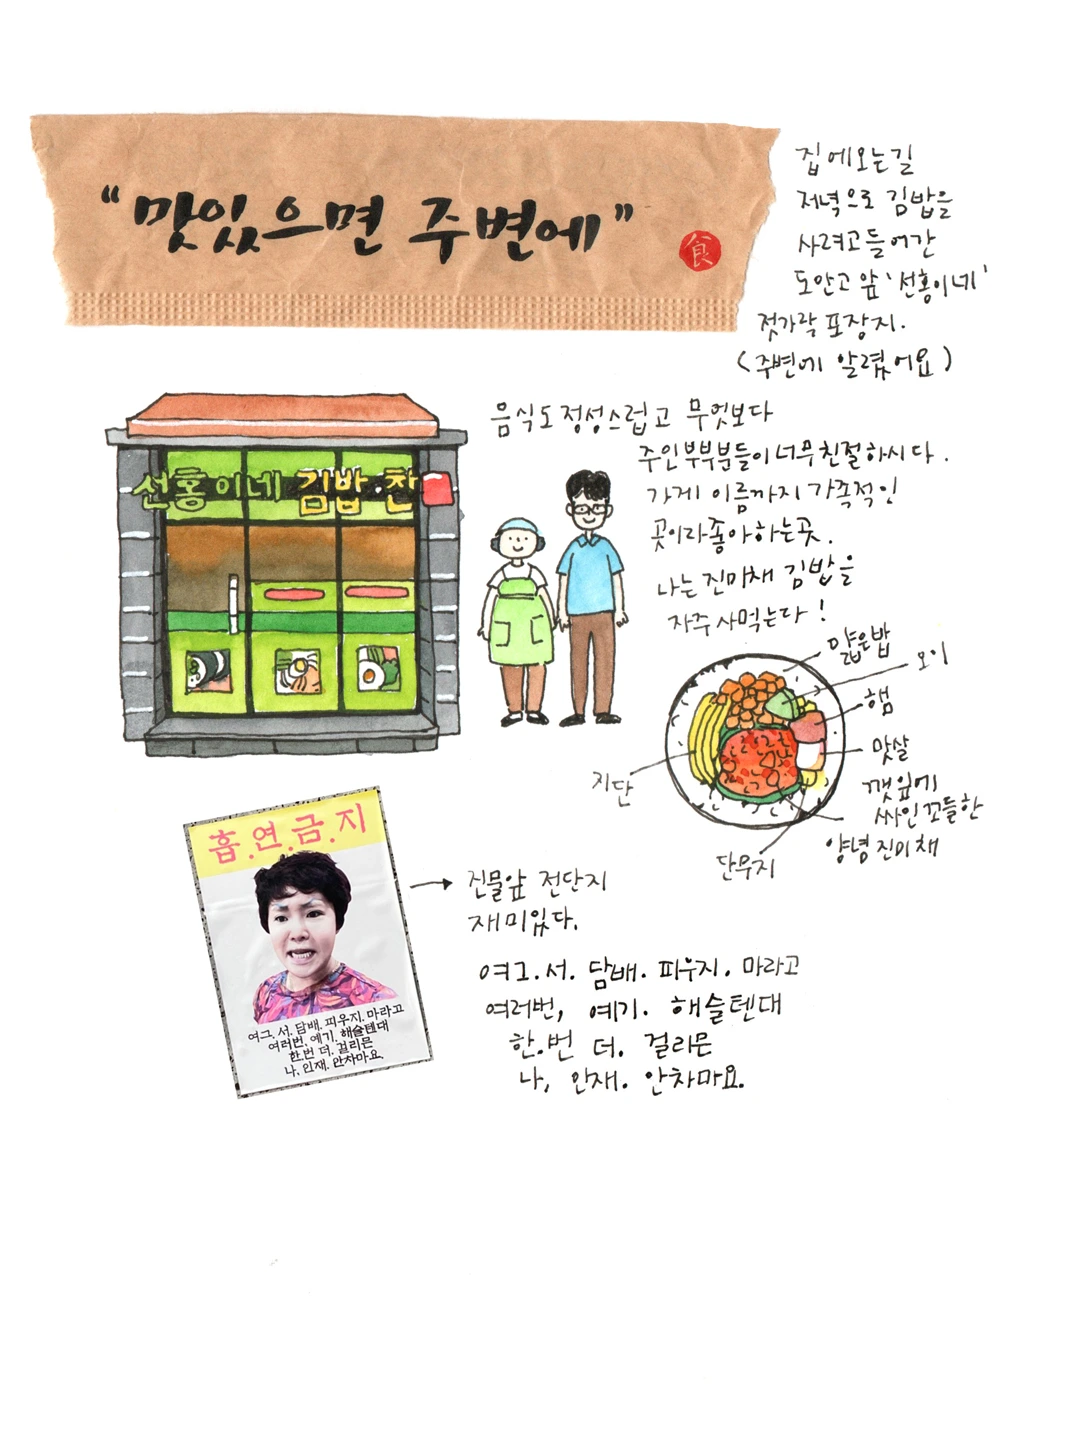 “맛있으면 주변에”
食
집에오는길
저녁으로 김밥을
사려고들어간
도안고 앞 '선홍이네'
젓가락 포장지.
(주변에 알렸어요)
음식도정성스럽고 무엇보다
주인부부분들이너무친절하시다.
가게 이름까지 가족적인
곳이라좋아하는곳.
나는진미채 김밥을
자주사먹는다!
선홍이네 김밥·찬
얇은밥
오이
햄
맛살
깻잎에
싸인꼬들한
양념진미채
단무지
지단
흡.연.금.지
여그.서.담배.피우지.마라고
여러번.예기.해슬텐대
한.번 더.걸리믄
나,인재.안차마요.
건물앞 전단지
재미있다.
여그.서.담배.피우지.마라고
여러번, 예기. 해슬텐대
한.번 더. 걸리믄
나, 인재. 안차마요.